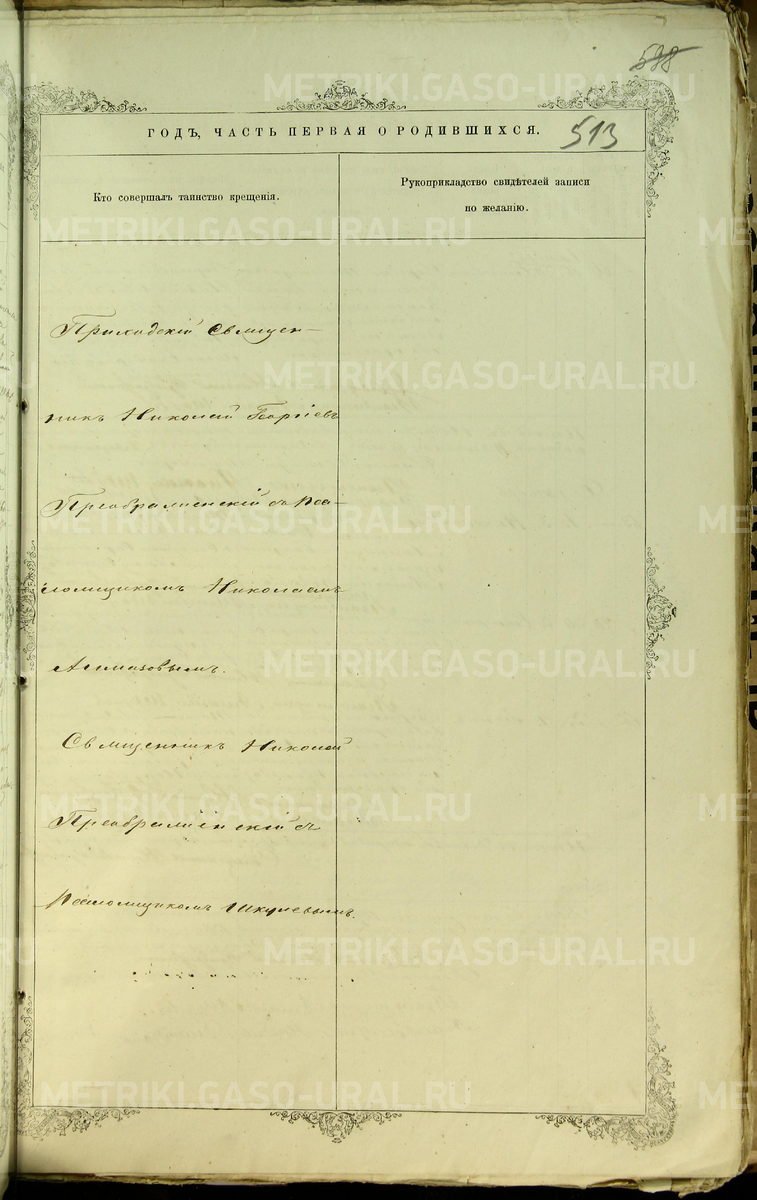 538
ГОДЪ, ЧАСТЬ ПЕРВАЯ О РОДИВШИХСЯ.
513
Кто совершалъ таинство крещенія.
Рукоприкладство свидѣтелей записи
по желанію.
Приходскій Священ-
никъ Николай Георгіевъ
Преображенскій съ Пса-
ломщикомъ Николаемъ
Алмазовымъ.
Священникъ Николай
Преображенскій съ
Псаломщикомъ Шкулевымъ.
METRIKI.GASO-URAL.RU